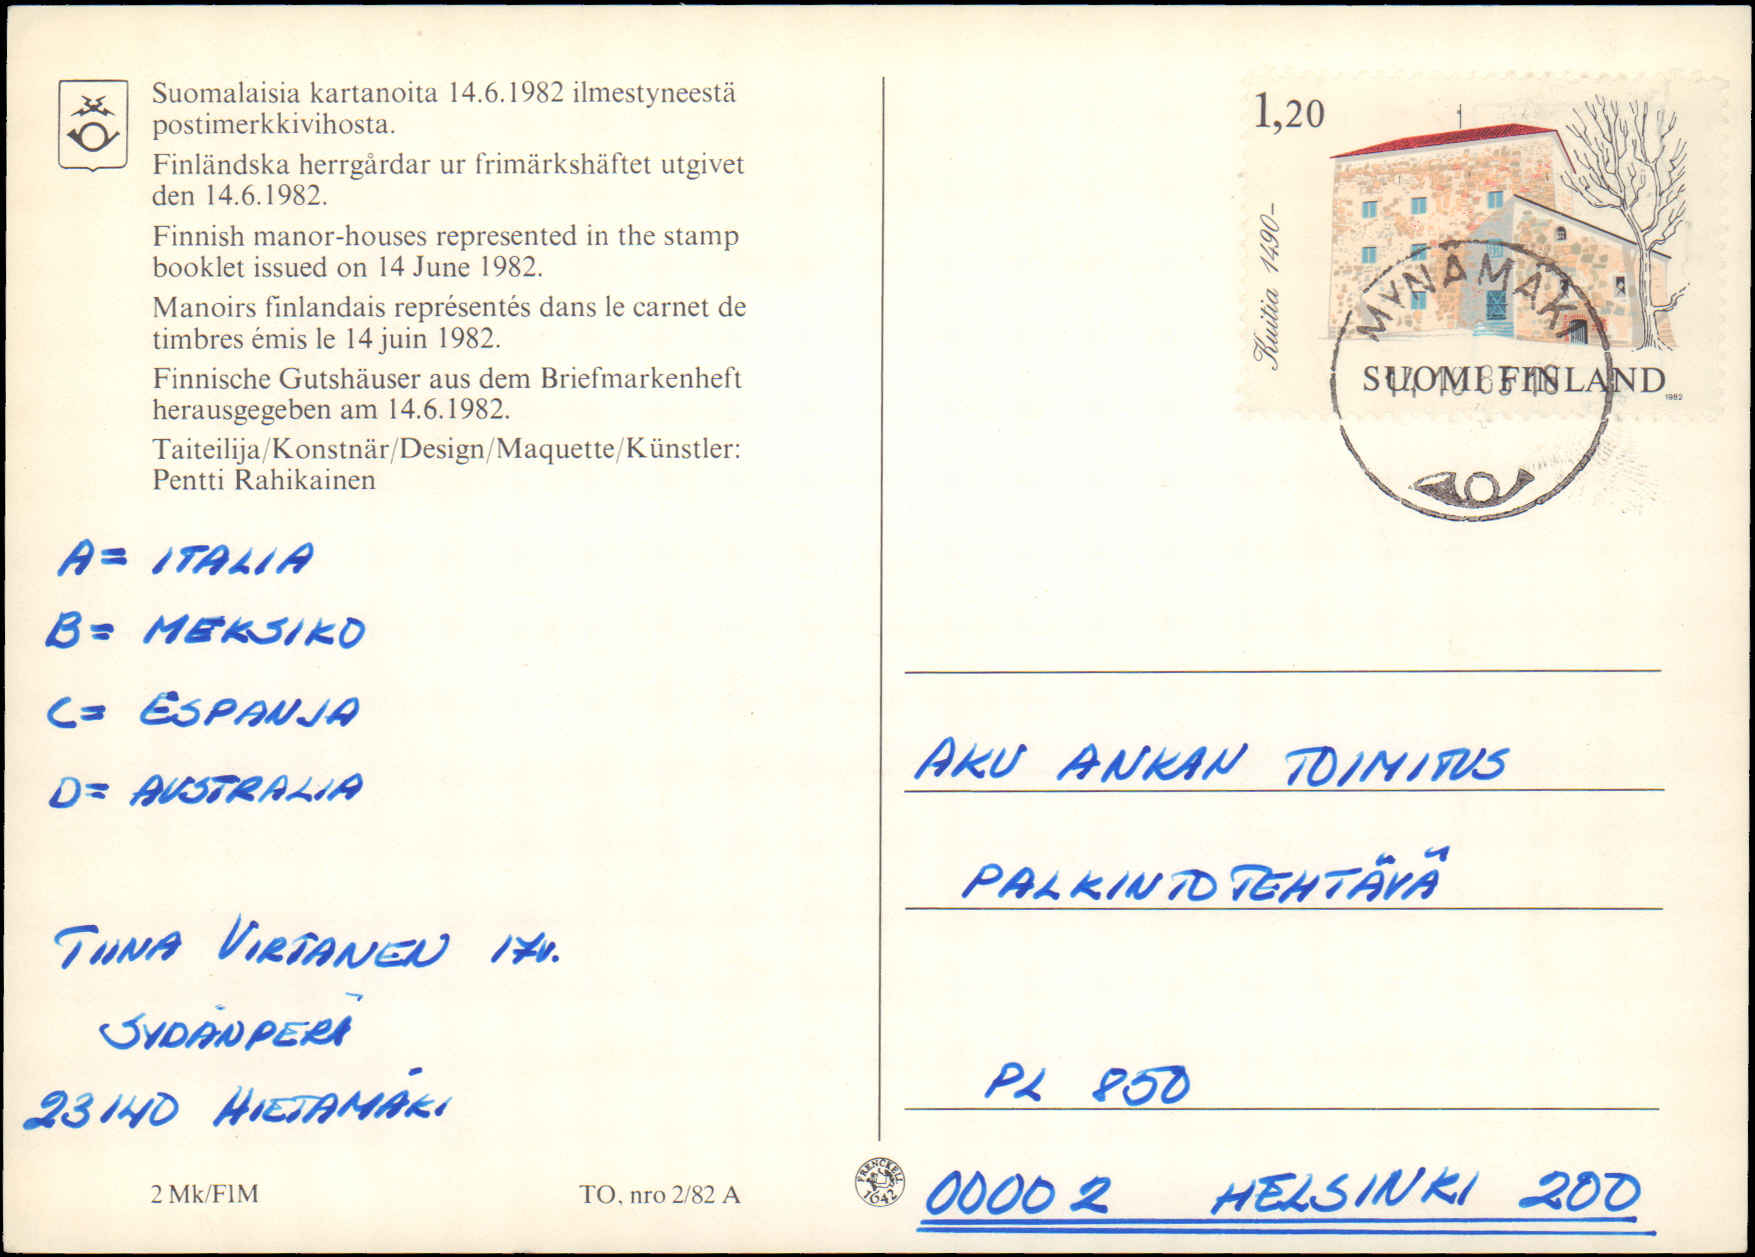 Suomalaisia kartanoita 14.6.1982 ilmestyneestä
postimerkkivihosta.
Finländska herrgårdar ur frimärkshäftet utgivet
den 14.6.1982.
Finnish manor-houses represented in the stamp
booklet issued on 14 June 1982.
Manoirs finlandais représentés dans le carnet de
timbres émis le 14 juin 1982.
Finnische Gutshäuser aus dem Briefmarkenheft
herausgegeben am 14.6.1982.
Taiteilija/Konstnär/Design/Maquette/Künstler:
Pentti Rahikainen
A= ITALIA
B= MEKSIKO
C= ESPANJA
D= AUSTRALIA
TIINA VIRTANEN 17v.
SYDÄNPERÄ
23140 HIETAMÄKI
2 Mk/FIM
TO, nro 2/82 A
FRENCKELL
1642
1,20
Kuitia 1490–
MYNÄMÄKI
SUOMI FINLAND
1982
AKU ANKAN TOIMITUS
PALKINTOTEHTÄVÄ
PL 850
00002 HELSINKI 200